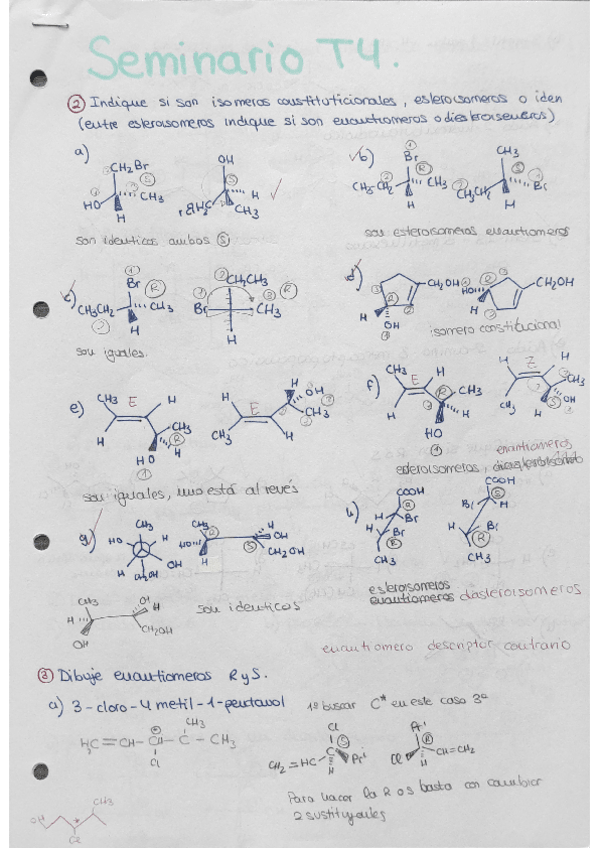 Seminario T4.
② Indique si son isomeros constituticionales, esteroisomeros o iden
(entre esteroisomeros indique si son enantiomeros o diesteroisomeros)
a)
CH2Br
OH
HO
CH3
H
S
H
CH3
son identicos ambos Ⓢ
b)
Br
R
CH3CH2
CH3
H
CH3
S
CH3CH2
Br
H
son esteroisomeros enantiomeros
c)
Br
R
CH3CH2
CH3
H
CH2CH3
R
Br
CH3
H
son iguales.
d)
CH2OH
R
H
OH
R
HO
CH2OH
H
isomero constitucional
e)
CH3
E
H
H
CH3
R
H
HO
H
E
H
OH
CH3
CH3
H
son iguales, uno está al revés
f)
CH3
E
H
R
CH3
H
H
HO
H
Z
H
CH3
OH
CH3
S
H
enantiomeros
esteroisomeros,
g)
CH3
HO
H
H
OH
CH2OH
CH3
R
HO
H
H
OH
S
CH2OH
CH3
H
OH
OH
H
CH2OH
son identicos
h)
COOH
R
H
Br
H
Br
R
CH3
COOH
S
Br
H
H
Br
R
CH3
esteroisomeros
enantiomeros diasteroisomeros
enantiomero descriptor contrario
③ Dibuje enantiomeros R y S.
a) 3-cloro-4 metil-1-pentanol
1º buscar C* en este caso 3º
CH3
H2C=CH-CH-C-CH3
Cl
Cl
S
CH2=HC
C
Pri
H
Pri
R
Cl
C
CH=CH2
H
Para hacer la R o S basta con cambiar
2 sustituyentes
OH
CH3
*
Cl